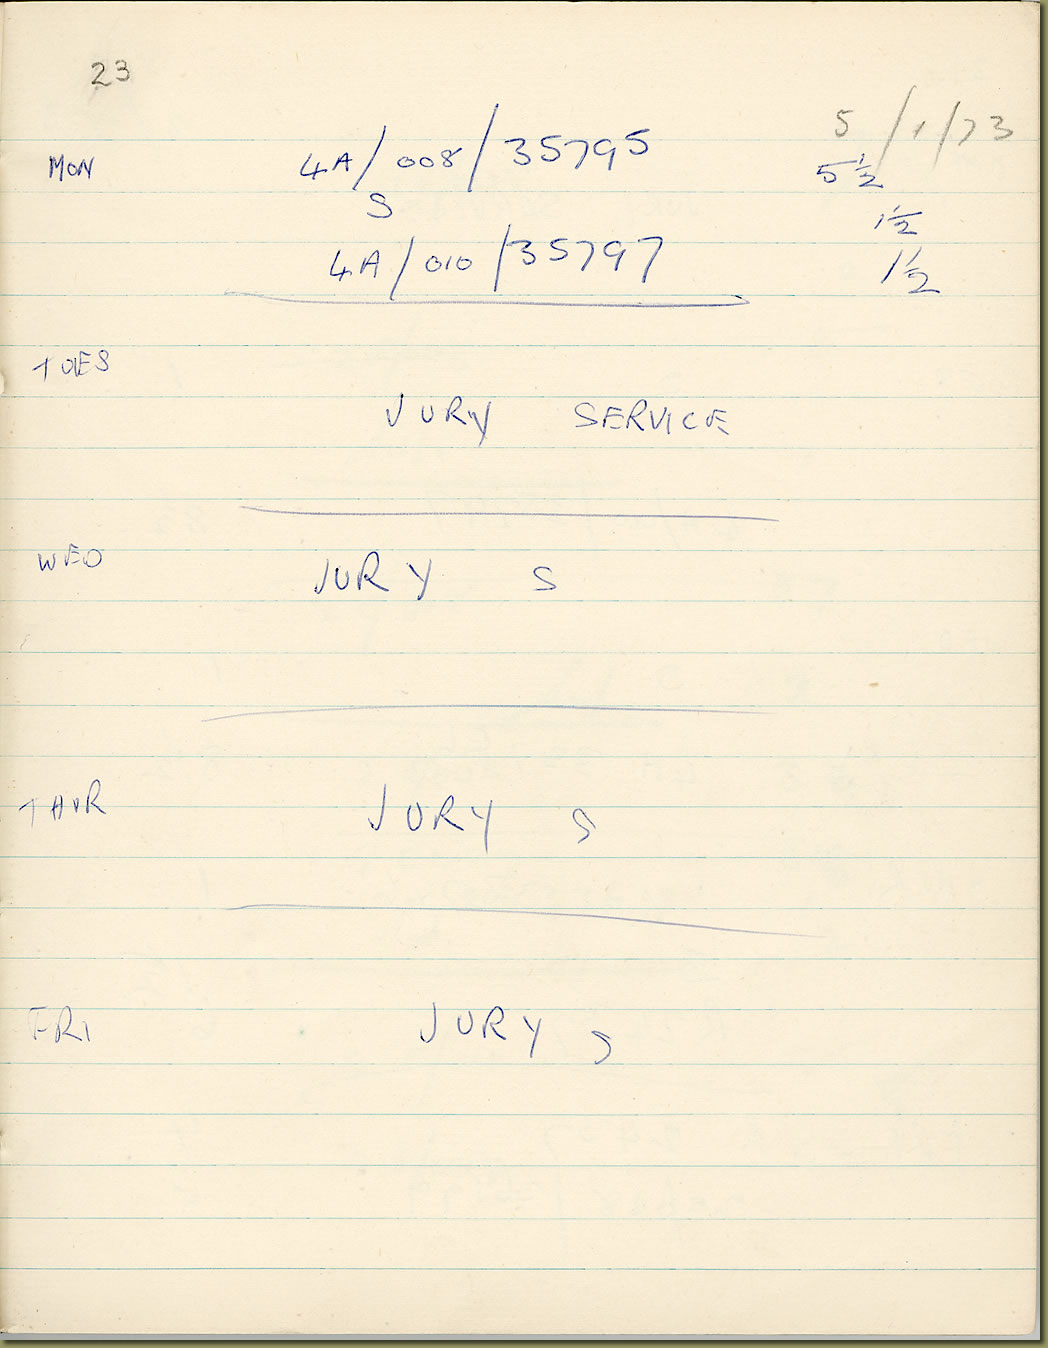 23
5/1/73
MON 4A/008/35795 5 1/2
S 1 1/2
4A/010/35797 1 1/2
TUES
JURY SERVICE
WED JURY S
THUR JURY S
FRI JURY S